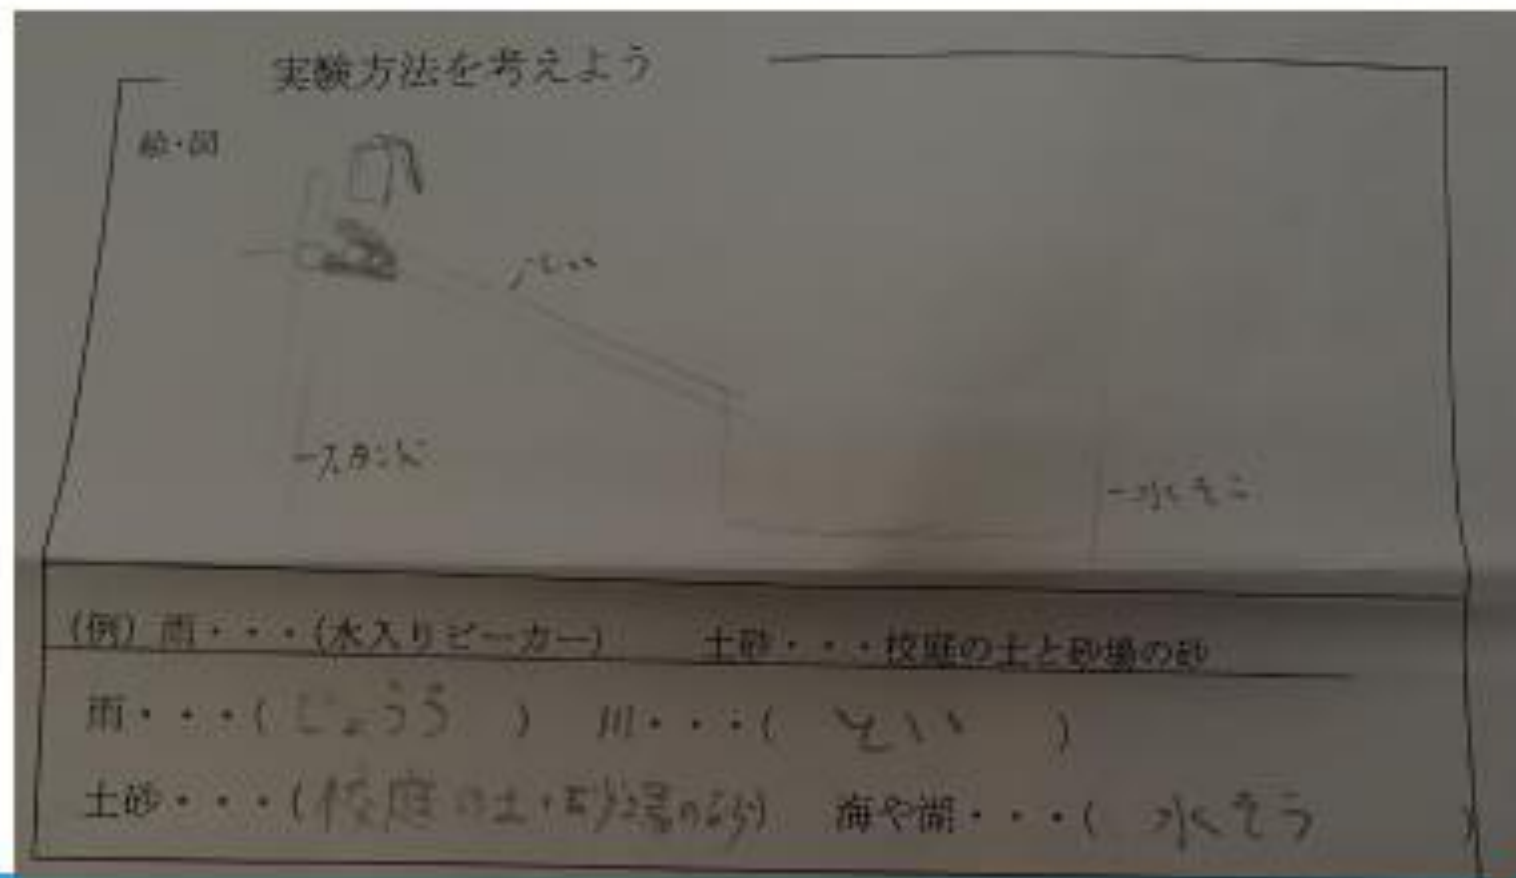 実験方法を考えよう
絵・図
とい
スタンド
水そう
(例) 雨・・・(水入りビーカー) 土砂・・・校庭の土と砂場の砂
雨・・・( じょうろ ) 川・・・( とい )
土砂・・・(校庭の土・砂場の砂) 海や湖・・・( 水そう )